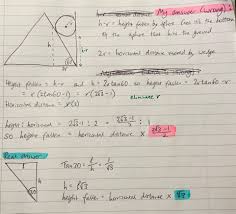 My answer (wrong):
h-r = height fallen by sphere (ie. till the bottom
of the sphere
2r = horizontal distance moved by wedge
h
h-r
2r
Height fallen = h-r and h = 2r tan60 so height fallen = 2r tan60 - r
= r(2tan60 - 1) = r(2√3 - 1)
Horizontal distance = r(2)
eliminate r
height : horizontal = 2√3-1 : 2 = (2√3-1)/2 : 1
so height fallen = horizontal distance × (2√3-1)/2
Real answer:
Tan30 = = 1/√3
30
h = √3
height fallen = horizontal distance × √3